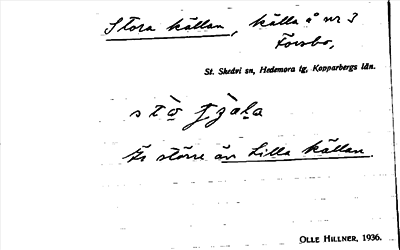 Stora källan, källa å nr 3
Forsbo,
St. Skedvi sn, Hedemora tg, Kopparbergs län.
Är större än Lilla källan.
OLLE HILLNER, 1936.